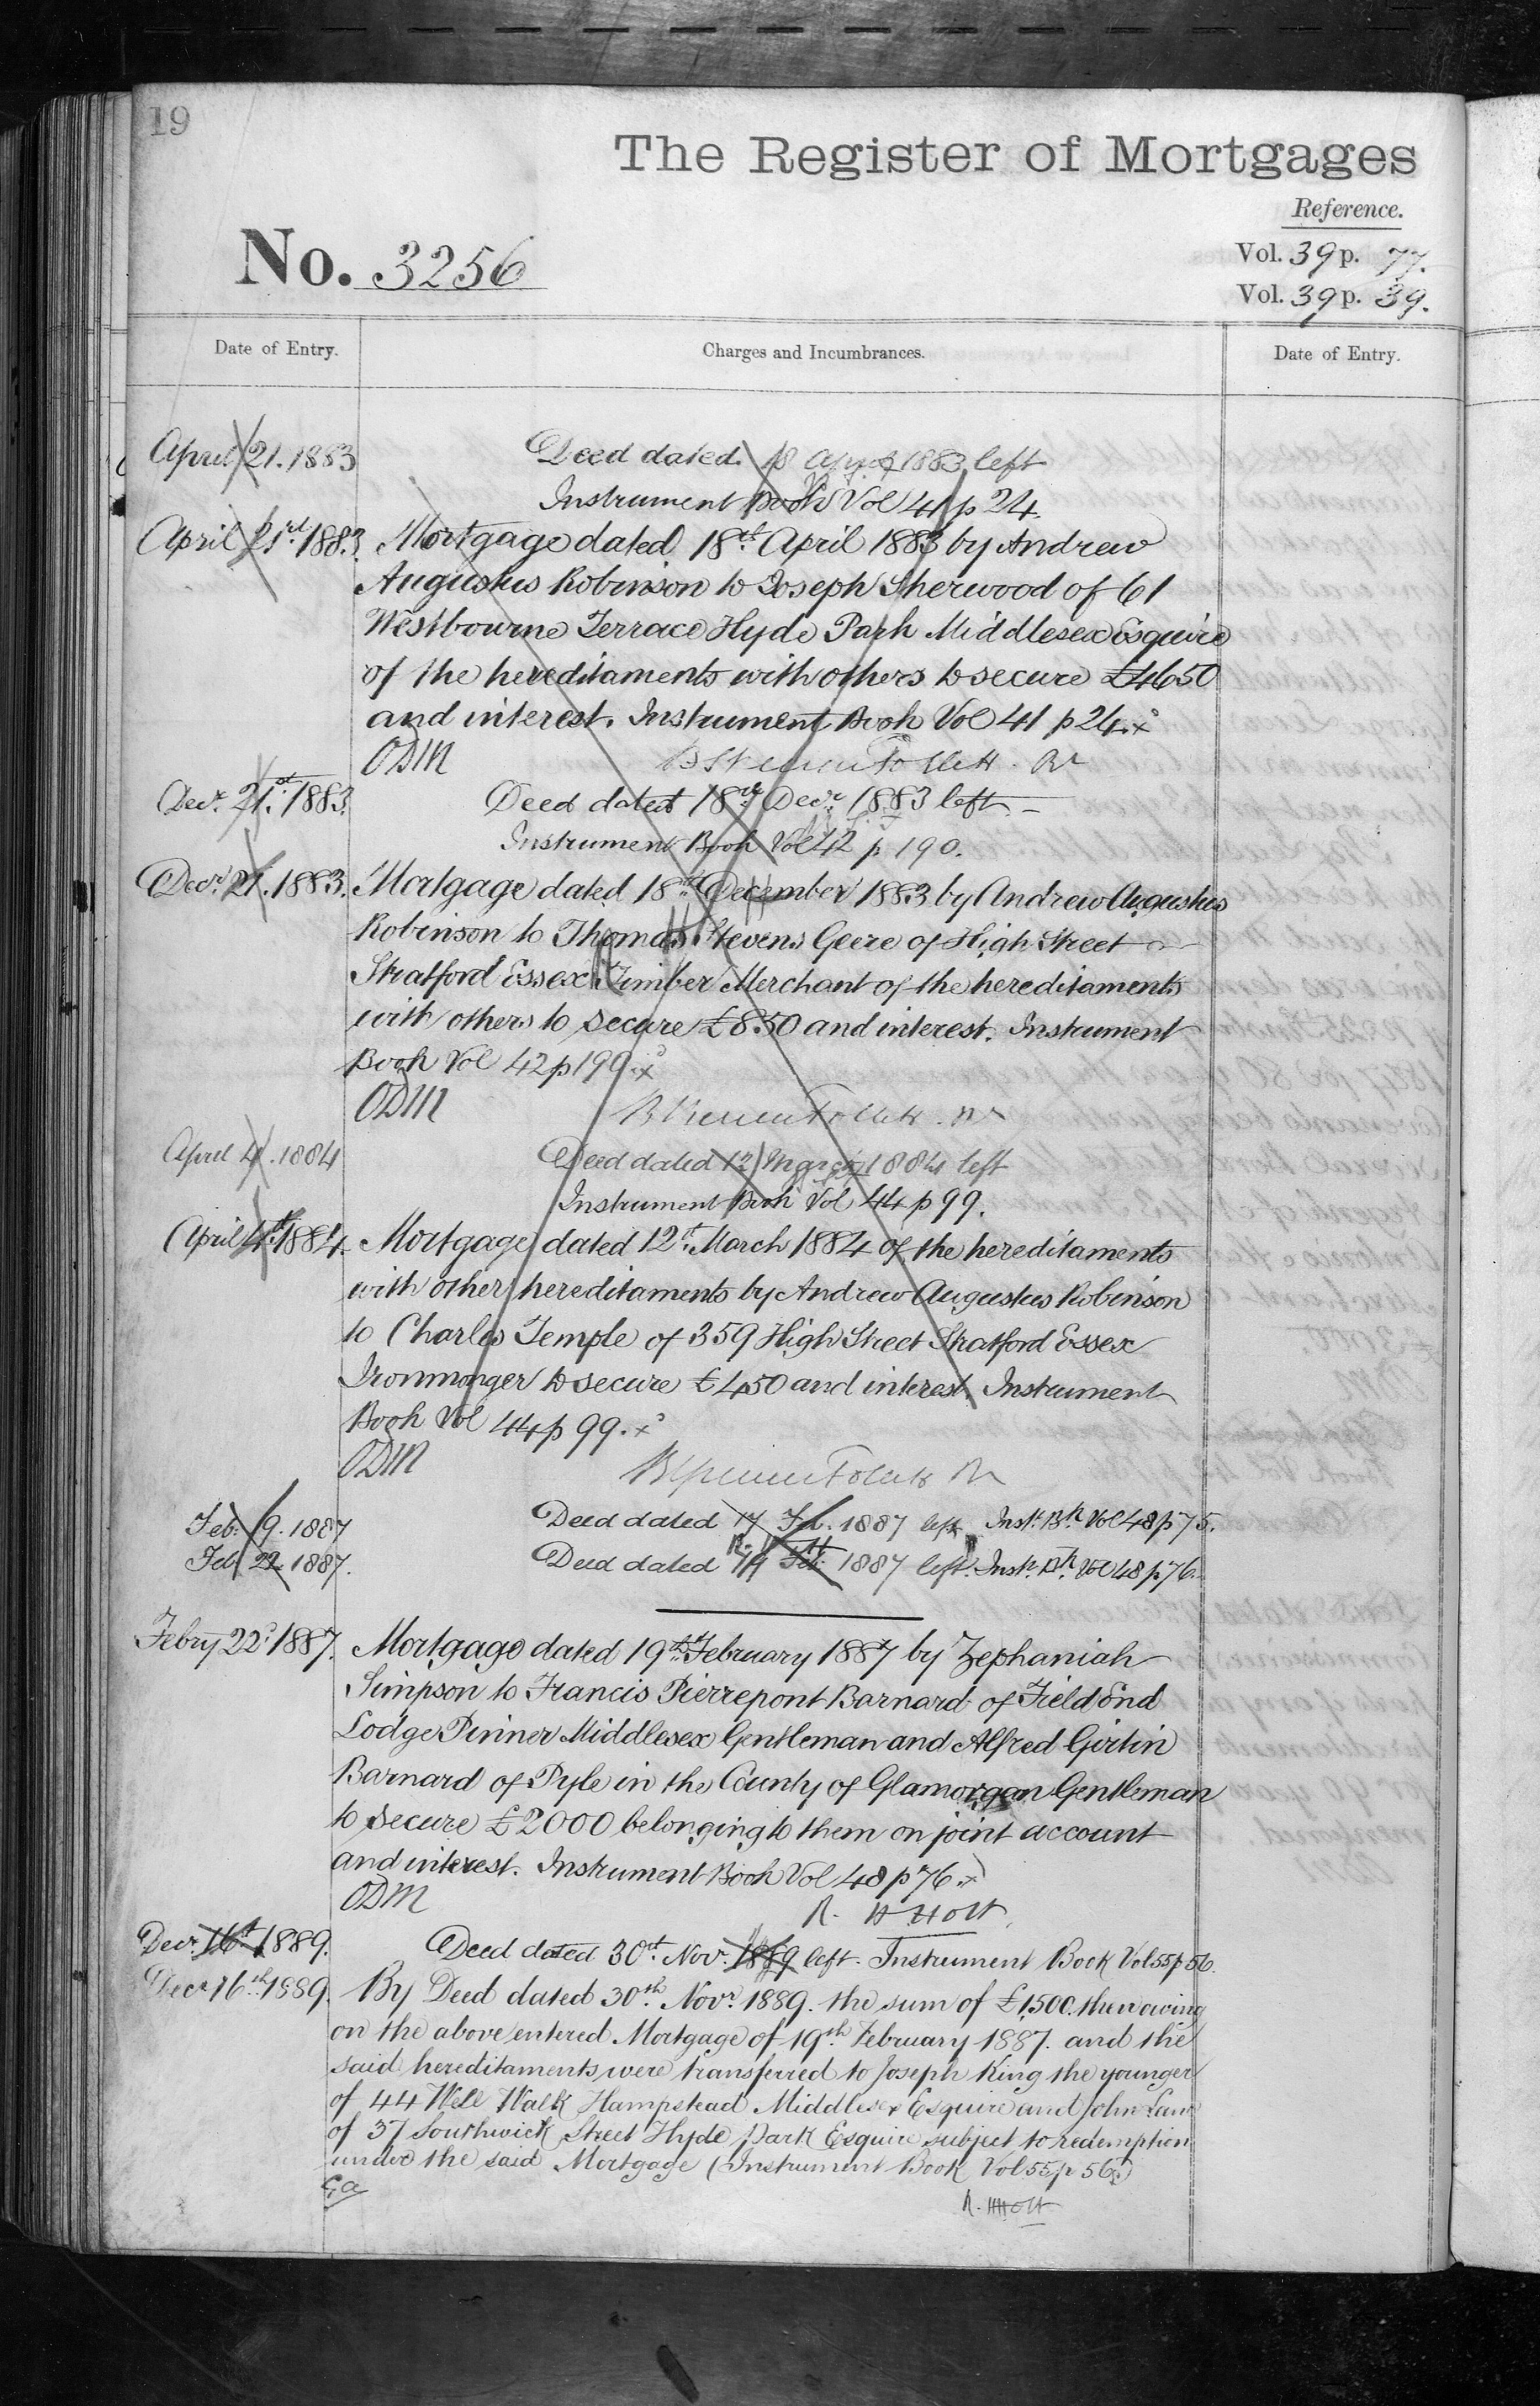 19
The Register of Mortgages
Reference.
No. 3256
Vol. 39 p. 77.
Vol. 39 p. 39.
Date of Entry.
Charges and Incumbrances.
Date of Entry.
April 21. 1883
Deed dated 18 April 1883 left
Instrument Book Vol 41 p 24.
April 21st 1883. Mortgage dated 18th April 1883 by Andrew
Augustus Robinson to Joseph Sherwood of 61
Westbourne Terrace Hyde Park Middlesex Esquire
of the hereditaments with others to secure £4650
and interest. Instrument Book Vol 41 p 24.
ODM
Decr. 21st. 1883.
Deed dated 18th Decr. 1883 left
Instrument Book Vol 42 p 190.
Decr. 21. 1883. Mortgage dated 18th December 1883 by Andrew Augustus
Robinson to Thomas Stevens Geere of High Street
Stratford Essex Timber Merchant of the hereditaments
with others to secure £850 and interest. Instrument
Book Vol 42 p 190.
ODM
April 4. 1884
Deed dated 12 March 1884 left
Instrument Book Vol 44 p 99.
April 4th. 1884. Mortgage dated 12th March 1884 of the hereditaments
with other hereditaments by Andrew Augustus Robinson
to Charles Temple of 359 High Street Stratford Essex
Ironmonger to secure £450 and interest. Instrument
Book Vol 44 p 99.
ODM
Feb: 19. 1887
Deed dated 17 Feb. 1887 left Inst. Bk. Vol 48 p 75.
Feb 22 1887.
Deed dated 19 Feb: 1887 left. Inst. Bk. Vol 48 p 76.
Febry 22d. 1887. Mortgage dated 19th February 1887 by Zephaniah
Simpson to Francis Pierrepont Barnard of Field End
Lodge Pinner Middlesex Gentleman and Alfred Girtin
Barnard of Pyle in the County of Glamorgan Gentleman
to secure £2000 belonging to them on joint account
and interest. Instrument Book Vol 48 p 76.
ODM
R. H Holt
Decr. 16th 1889.
Deed dated 30th. Novr. 1889 left. Instrument Book Vol 55 p 56.
Decr. 16th. 1889. By Deed dated 30th. Novr. 1889. the sum of £1,500. then owing
on the above entered Mortgage of 19th. February 1887. and the
said hereditaments were transferred to Joseph King the younger
of 44 Well Walk Hampstead Middlesex Esquire and John Lane
of 37 Southwick Street Hyde Park Esquire subject to redemption
under the said Mortgage (Instrument Book Vol 55 p 56.)
R. H Holt